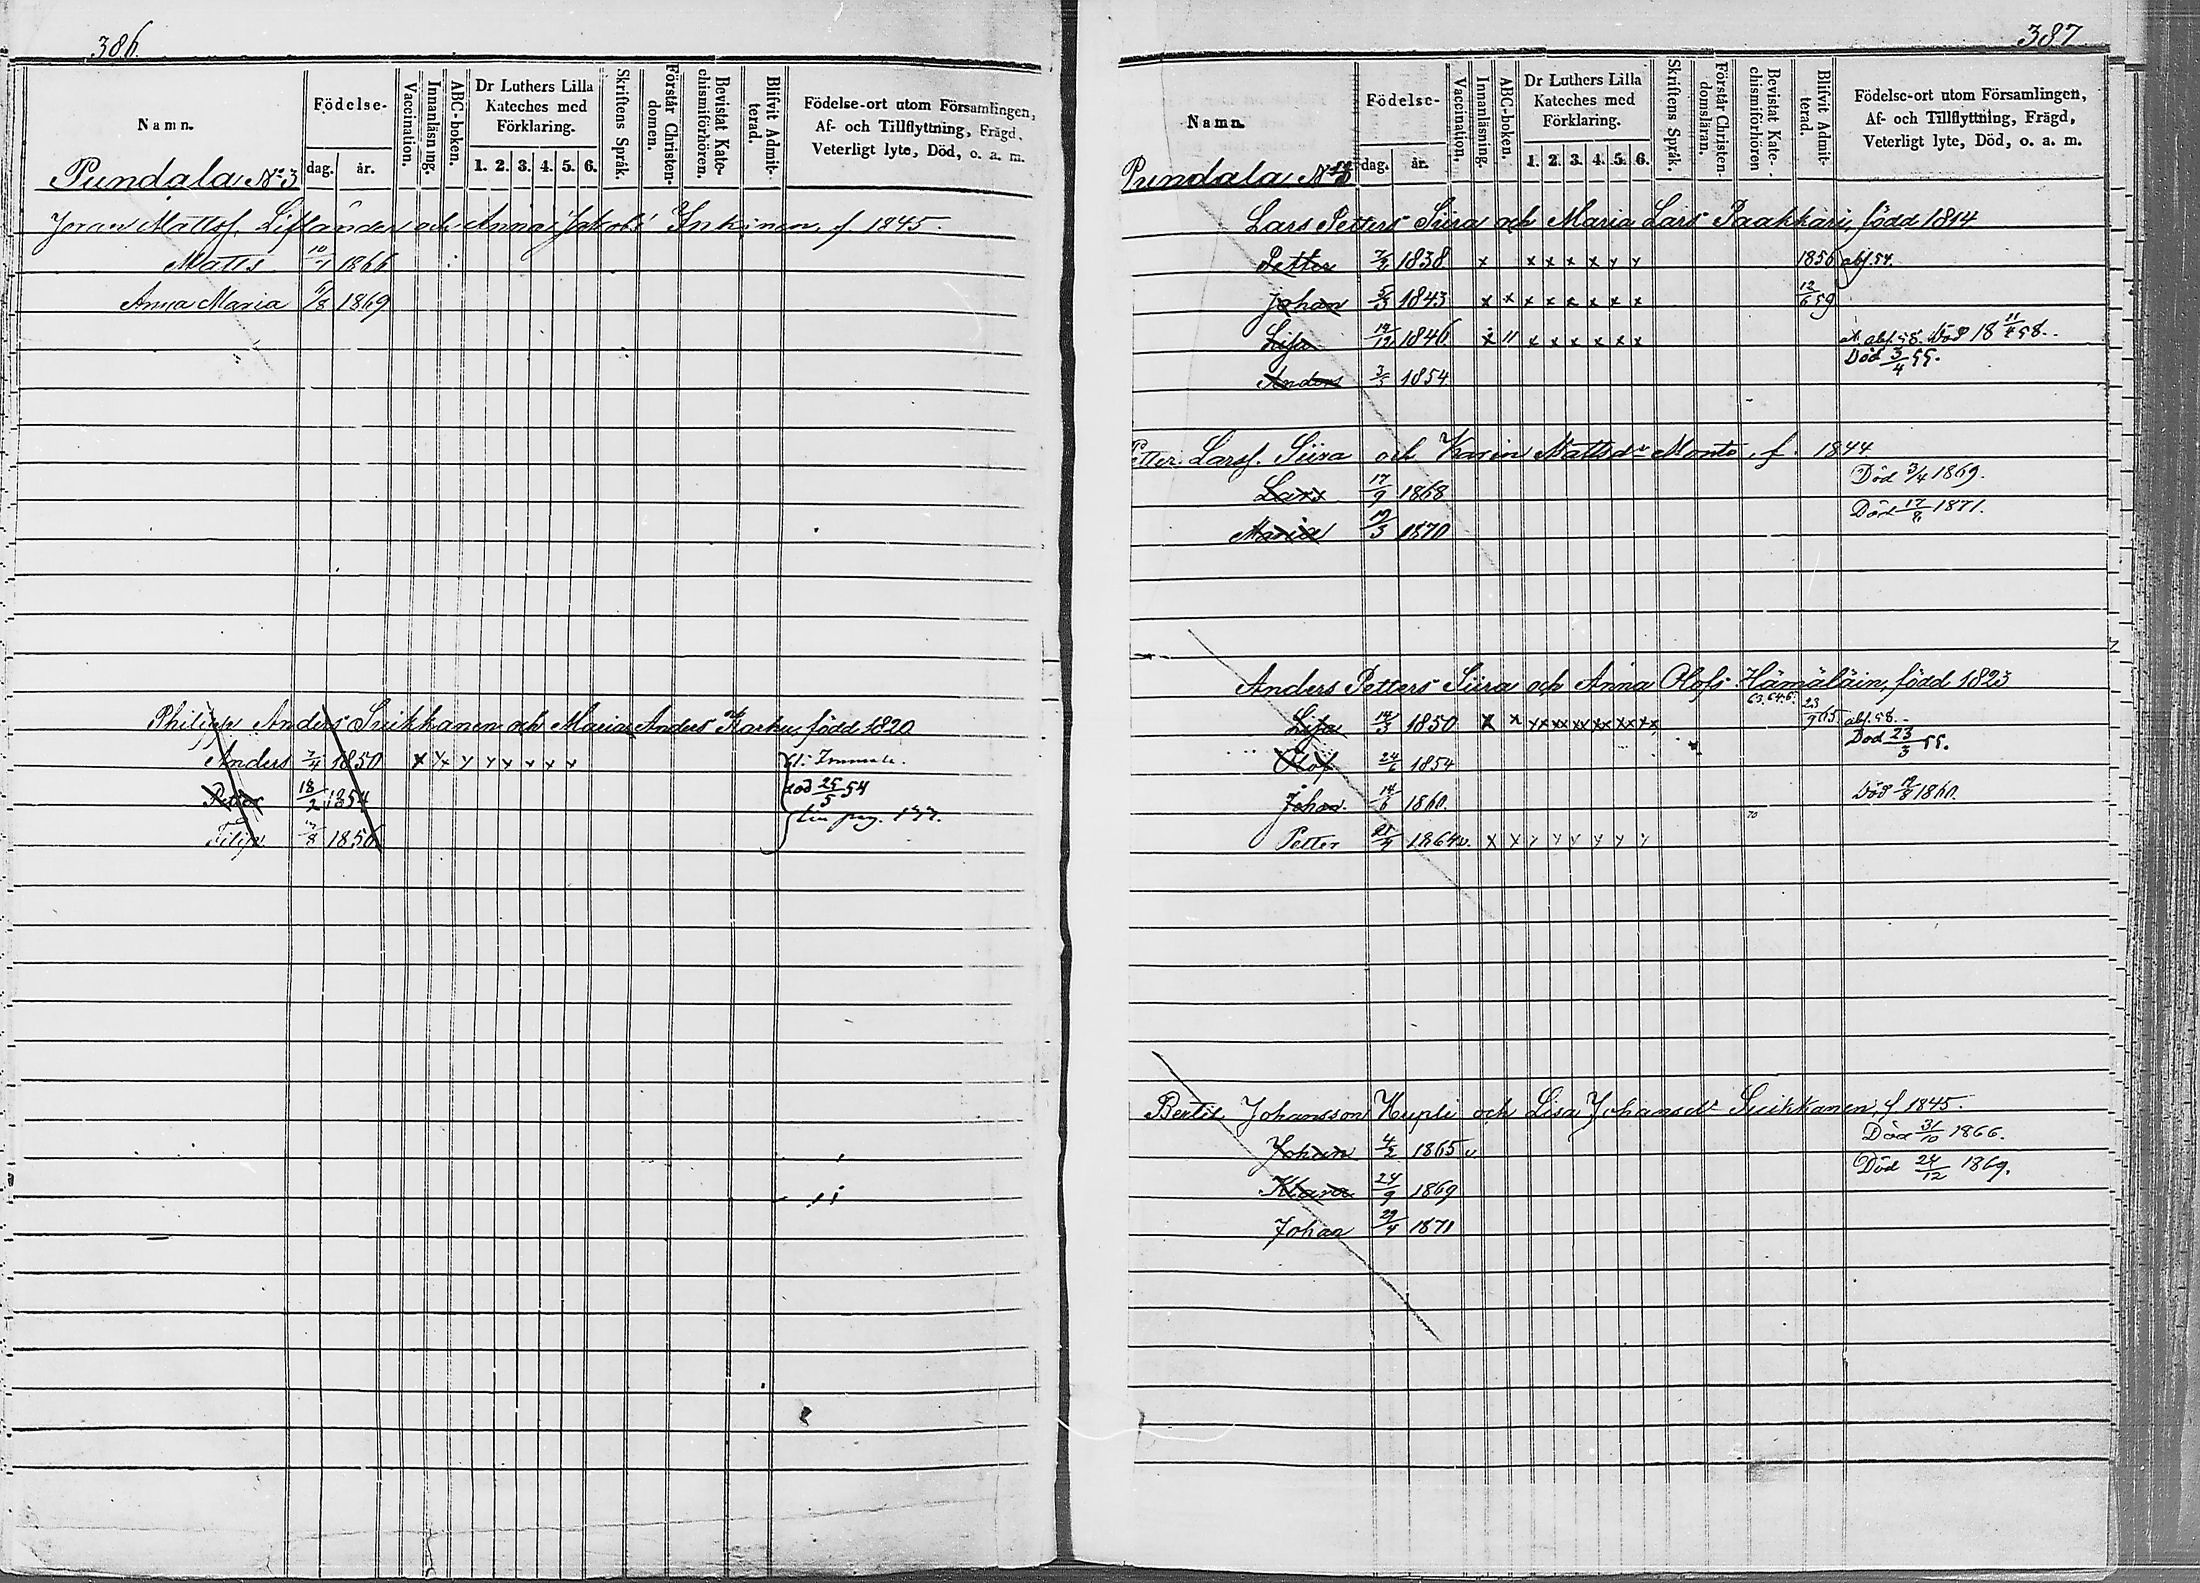 386.
Namn.
Födelse-
dag. år.
Vaccination.
Innanläsning.
ABC-boken.
Dr Luthers Lilla
Kateches med
Förklaring.
1. 2. 3. 4. 5. 6.
Skriftens Språk.
Förstår Christen-
domen.
Bevistat Kate-
chismiförhören.
Blifvit Admit-
terad.
Födelse-ort utom Församlingen,
Af- och Tillflyttning, Frägd,
Veterligt lyte, Död, o. a. m.
Pundala No 3
Joran Mattss. Liflander och Anna Jakobs Inkinen, f 1845.
Matts 1866
Anna Maria 1869
Philipp Anders Suikkanen och Maria Anders Karhu, född 1820
Anders 1850 x x y y y y y y
Petter 18/2 1854 död 25/5 54
Filip 1856
387
Namn.
Födelse-
dag. år.
Vaccination.
Innanläsning.
ABC-boken.
Dr Luthers Lilla
Kateches med
Förklaring.
1. 2. 3. 4. 5. 6.
Skriftens Språk.
Förstår Christen-
domsläran.
Bevistat Kate-
chismiförhören
Blifvit Admit-
terad.
Födelse-ort utom Församlingen,
Af- och Tillflyttning, Frägd,
Veterligt lyte, Död, o. a. m.
Pundala No
Lars Petters Siira och Maria Lars Paakkari, född 1814
Petter 1838 x x x x x y y 1856 abs. 54.
Johan 5/3 1843 x x x x x x x x 12/6 59
Lisa 1846 x " x x x x x x abs. 58. Död 18 11/4 58.
Död 3/4 55.
Anders 1854
Petter Larss. Siira och Karin Mattsdr Monto, f. 1844
Död 3/4 1869.
Lars 17/9 1868
Död 17/8 1871.
Maria 1870
Anders Petters Siira och Anna Olofs Hämäläin, född 1823
Lisa 1850 x x 23/9 65 abs. 58.
Död 23/3 55.
Olof 24/6 1854
Johan 14/6 1860. Död 1860.
70
Petter 1864 v. x x y y y y y y
Bertil Johansson Hupli och Lisa Johansdr Suikkanen, f 1845.
Död 31/10 1866.
Johan 4/2 1865 v
Död 24/12 1869.
Klara 24/9 1869
Johan 29/4 1871